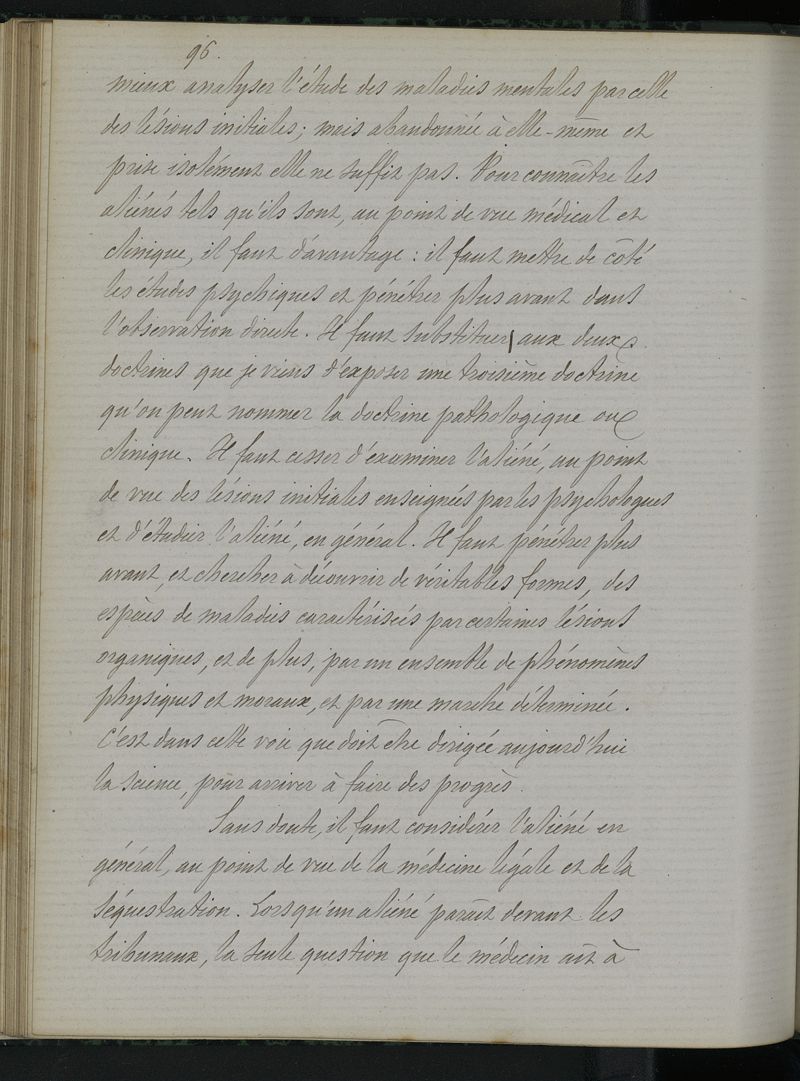 96.
mieux analyser l'étude des maladies mentales par celle
des lésions initiales; mais abandonnée à elle-même et
prise isolément elle ne suffit pas. Pour connaître les
aliénés tels qu'ils sont, au point de vue médical et
clinique, il faut d'avantage : il faut mettre de côté
les études psychiques et pénétrer plus avant dans
l'observation directe. Il faut substituer aux deux
doctrines que je viens d'exposer une troisième doctrine
qu'on peut nommer la doctrine pathologique ou
clinique. Il faut cesser d'examiner l'aliéné, au point
de vue des lésions initiales enseignées par les psychologues
et d'étudier l'aliéné, en général. Il faut pénétrer plus
avant, et chercher à découvrir de véritables formes, des
espèces de maladies caractérisées par certaines lésions
organiques, et de plus, par un ensemble de phénomènes
physiques et moraux, et par une marche déterminée.
C'est dans cette voie que doit être dirigée aujourd'hui
la science, pour arriver à faire des progrès.
Sans doute, il faut considérer l'aliéné en
général, au point de vue de la médecine légale et de la
séquestration. Lorsqu'un aliéné paraît devant les
tribunaux, la seule question que le médecin ait à